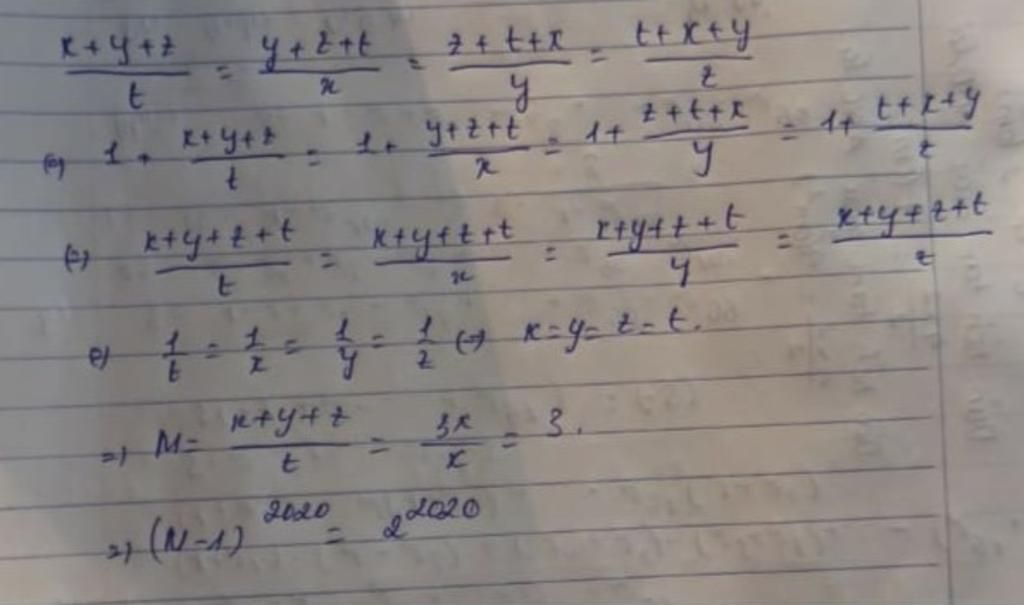 x+y+z/t = y+z+t/x = z+t+x/y = t+x+y/z
(=) 1 + x+y+z/t = 1 + y+z+t/x = 1 + z+t+x/y = 1 + t+x+y/z
(=) x+y+z+t/t = x+y+z+t/x = x+y+z+t/y = x+y+z+t/z
(=) 1/t = 1/x = 1/y = 1/z (=) x=y=z=t.
=) M= x+y+z/t = 3x/x = 3.
=) (M-1)^2020 = 2^2020